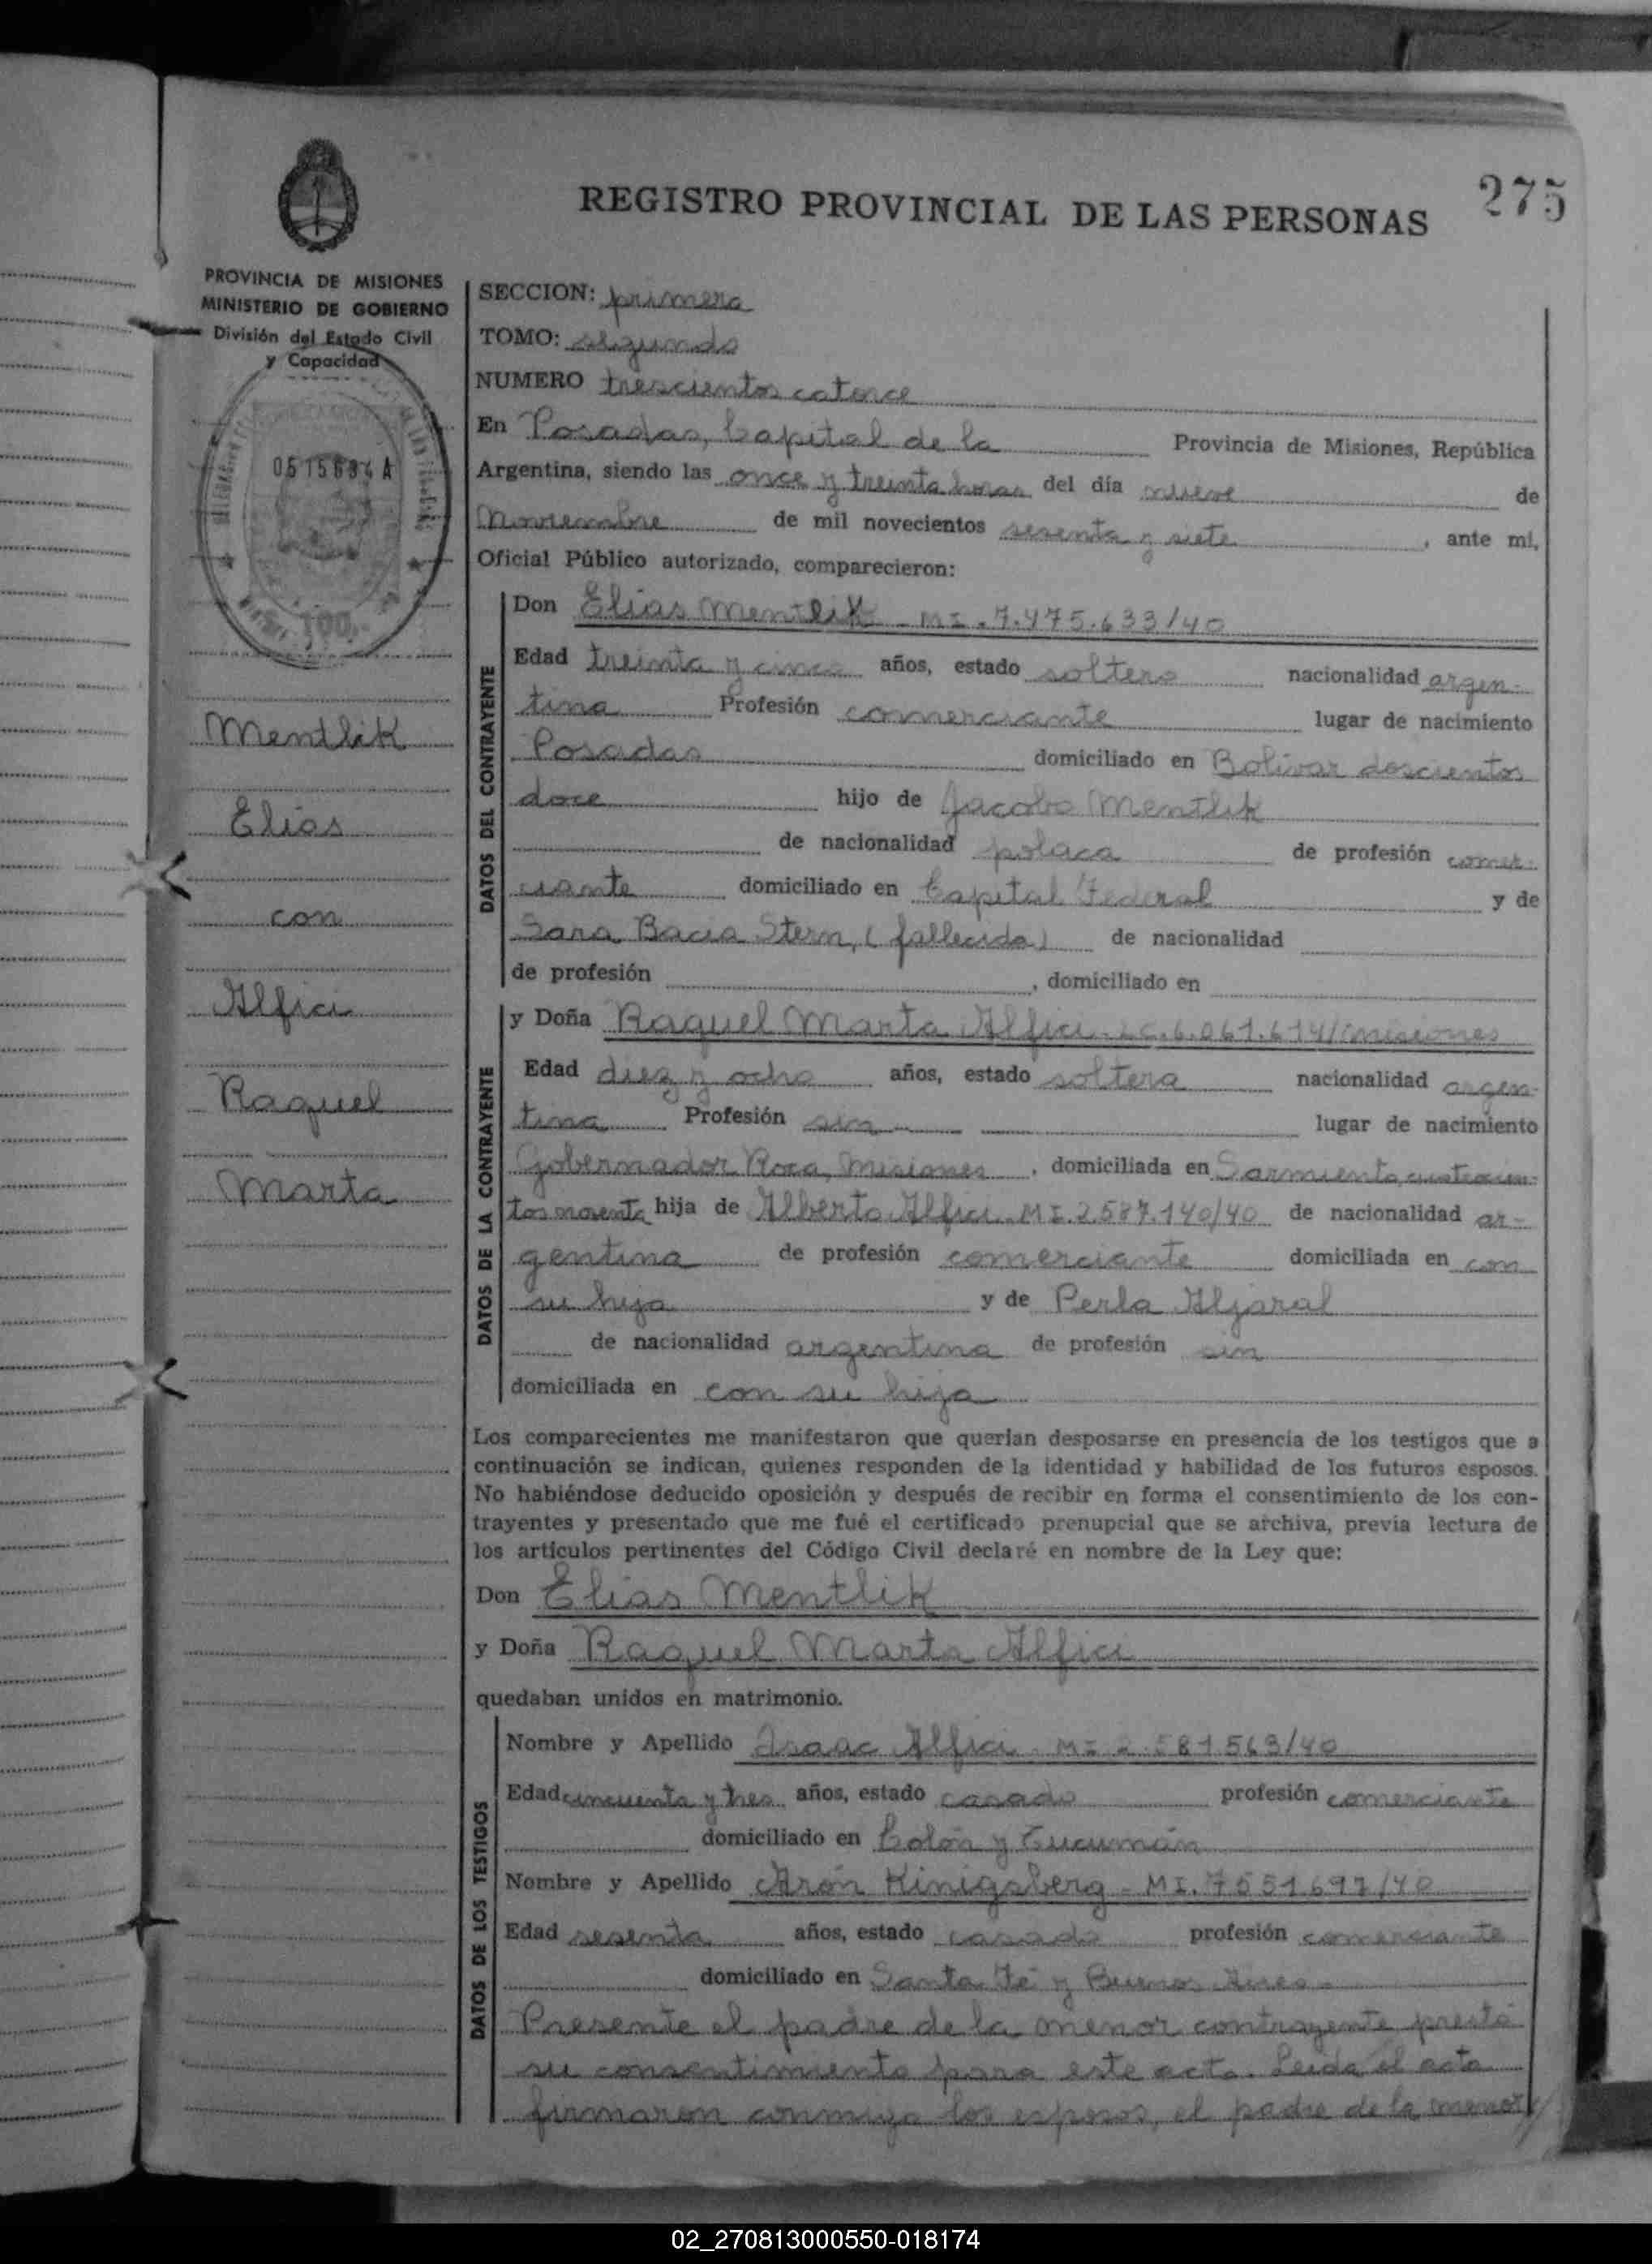 REGISTRO PROVINCIAL DE LAS PERSONAS
275
PROVINCIA DE MISIONES
MINISTERIO DE GOBIERNO
División del Estado Civil
y Capacidad
0515684 A
100
Mentlik
Elias
con
Alfici
Raquel
Marta
SECCION: primera
TOMO: segundo
NUMERO trescientos catorce
En Posadas, Capital de la Provincia de Misiones, República
Argentina, siendo las once y treinta horas del día nueve de
Noviembre de mil novecientos sesenta y siete, ante mí,
Oficial Público autorizado, comparecieron:
DATOS DEL CONTRAYENTE
Don Elias Mentlik - MI. 7.475.633/40
Edad treinta y cinco años, estado soltero nacionalidad argen-
tina Profesión comerciante lugar de nacimiento
Posadas domiciliado en Bolívar doscientos
doce hijo de Jacobo Mentlik
de nacionalidad polaca de profesión comer-
ciante domiciliado en Capital Federal y de
Sara Bacia Stern, (fallecida) de nacionalidad
de profesión , domiciliado en
DATOS DE LA CONTRAYENTE
y Doña Raquel Marta Alfici - LC. 6.061.614/Misiones
Edad diez y ocho años, estado soltera nacionalidad argen-
tina Profesión sin lugar de nacimiento
Gobernador Roca, Misiones, domiciliada en Sarmiento cuatrocien-
tos noventa hija de Alberto Alfici MI. 2.587.140/40 de nacionalidad ar-
gentina de profesión comerciante domiciliada en con
su hija y de Perla Aljaral
de nacionalidad argentina de profesión sin
domiciliada en con su hija
Los comparecientes me manifestaron que querían desposarse en presencia de los testigos que a
continuación se indican, quienes responden de la identidad y habilidad de los futuros esposos.
No habiéndose deducido oposición y después de recibir en forma el consentimiento de los con-
trayentes y presentado que me fué el certificado prenupcial que se archiva, previa lectura de
los artículos pertinentes del Código Civil declaré en nombre de la Ley que:
Don Elias Mentlik
y Doña Raquel Marta Alfici
quedaban unidos en matrimonio.
DATOS DE LOS TESTIGOS
Nombre y Apellido Isaac Alfici - MI 2.581.563/40
Edad cincuenta y tres años, estado casado profesión comerciante
domiciliado en Colón y Tucumán
Nombre y Apellido Arón Kinigsberg - MI. 7551697/40
Edad sesenta años, estado casado profesión comerciante
domiciliado en Santa Fé y Buenos Aires -
Presente el padre de la menor contrayente prestó
su consentimiento para este acto. Leída el acta
firmaron conmigo los esposos, el padre de la menor
02_270813000550-018174